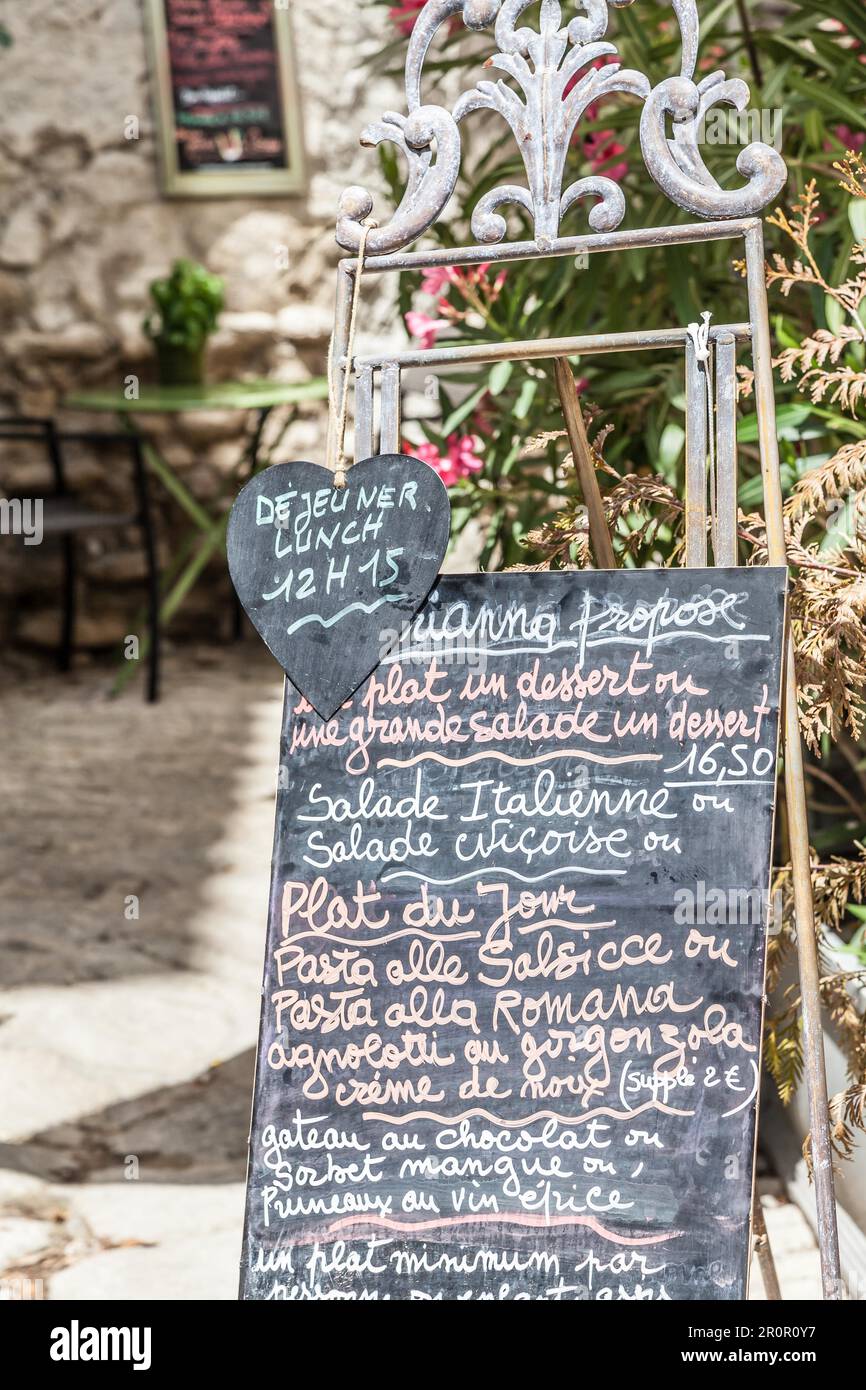 DÉJEUNER
LUNCH
12H15
propose
plat un dessert ou
une grande salade un dessert
16,50
Salade Italienne ou
Salade Niçoise ou
Plat du Jour
Pasta alle Salsicce ou
Pasta alla Romana
agnolotti au gorgonzola
crème de noux (supplé 2€)
gateau au chocolat ou
Sorbet mangue ou,
Pruneaux au vin épice
un plat minimum par
alamy
Image ID: 2R0R0Y7
www.alamy.com